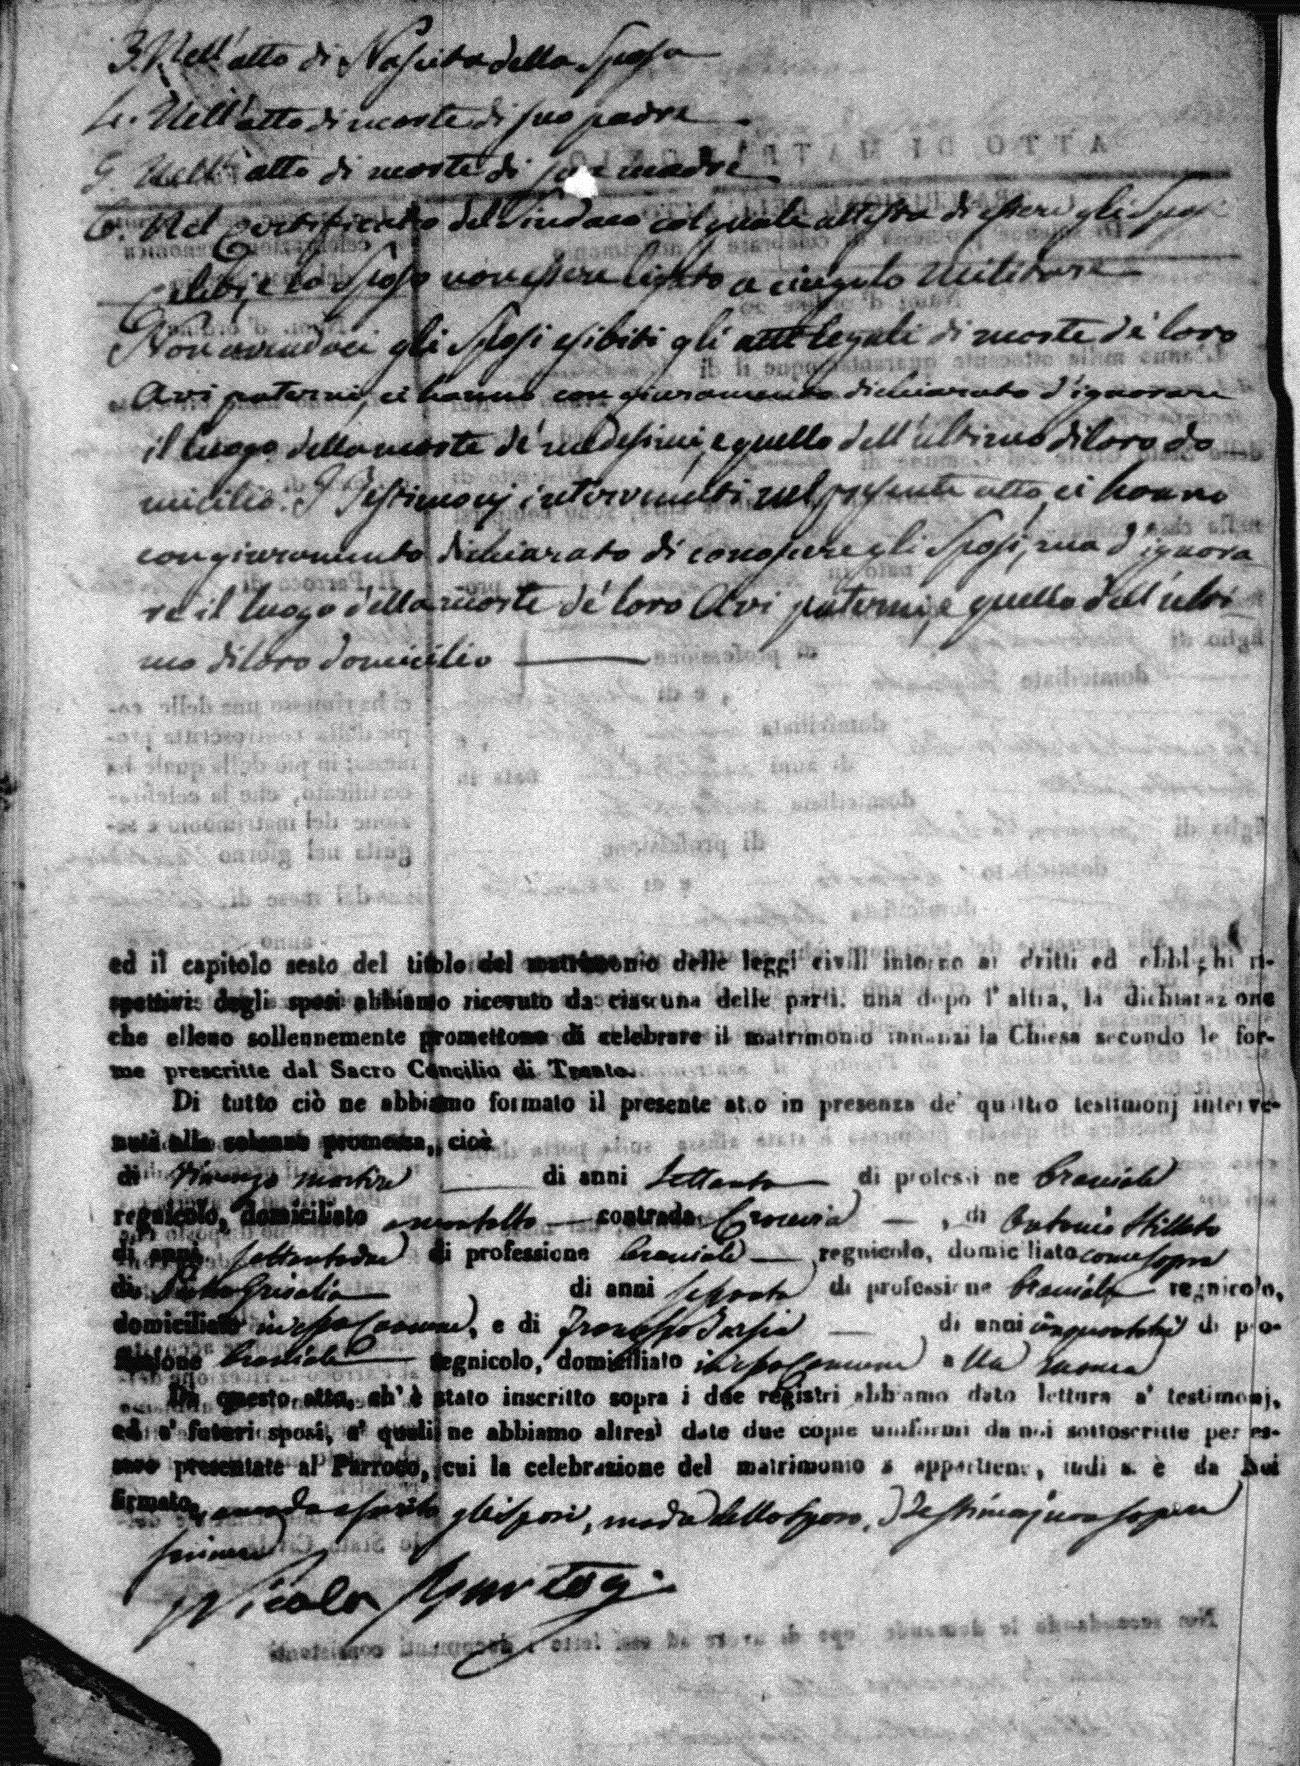 3. Nell'atto di Nascita della Sposa
4. Nell'atto di morte di suo padre
5. Nell'atto di morte di sua madre
6. Nel Certificato del Sindaco col quale attesta di essere gli Sposi
Celibi, e lo Sposo non essere ligato a cingolo militare
Non avendoci gli Sposi esibiti gli atti legali di morte de' loro
Avi paterni, ci hanno con giuramento dichiarato d'ignorare
il luogo della morte de' medesimi, e quello dell'ultimo di loro do
micilio. I Testimonj intervenuti nel presente atto ci hanno
con giuramento dichiarato di conoscere gli Sposi, ma d'ignora
re il luogo della morte de' loro Avi paterni, e quello dell'ulti
mo di loro domicilio
ed il capitolo sesto del titolo del matrimonio delle leggi civili intorno ai dritti ed obblighi ri-
spettivi degli sposi abbiamo ricevuto da ciascuna delle parti, una dopo l'altra, la dichiarazione
che elleno sollennemente promettono di celebrare il matrimonio innanzi la Chiesa secondo le for-
me prescritte dal Sacro Concilio di Trento.
Di tutto ciò ne abbiamo formato il presente atto in presenza de' quattro testimonj interve-
nuti alla solenne promessa, cioè
di Vincenzo di anni Settanta di professione Braciale
regnicolo, domiciliato contrada , di Antonio
di anni settantadue di professione Braciale regnicolo, domiciliato come sopra
di di anni di professione Braciale regnicolo,
domiciliato in esso Comune, e di Francesco di anni di pro-
fessione Braciale regnicolo, domiciliato in esso Comune alla
Di questo atto, ch'è stato inscritto sopra i due registri abbiamo dato lettura a' testimonj,
ed a' futuri sposi, a' quali ne abbiamo altresì date due copie uniformi da noi sottoscritte per es-
sere presentate al Parroco, cui la celebrazione del matrimonio s'appartiene, indi s'è da Noi
firmato, gli sposi, madre dello sposo, e testimonj non sapere
scrivere
Nicola